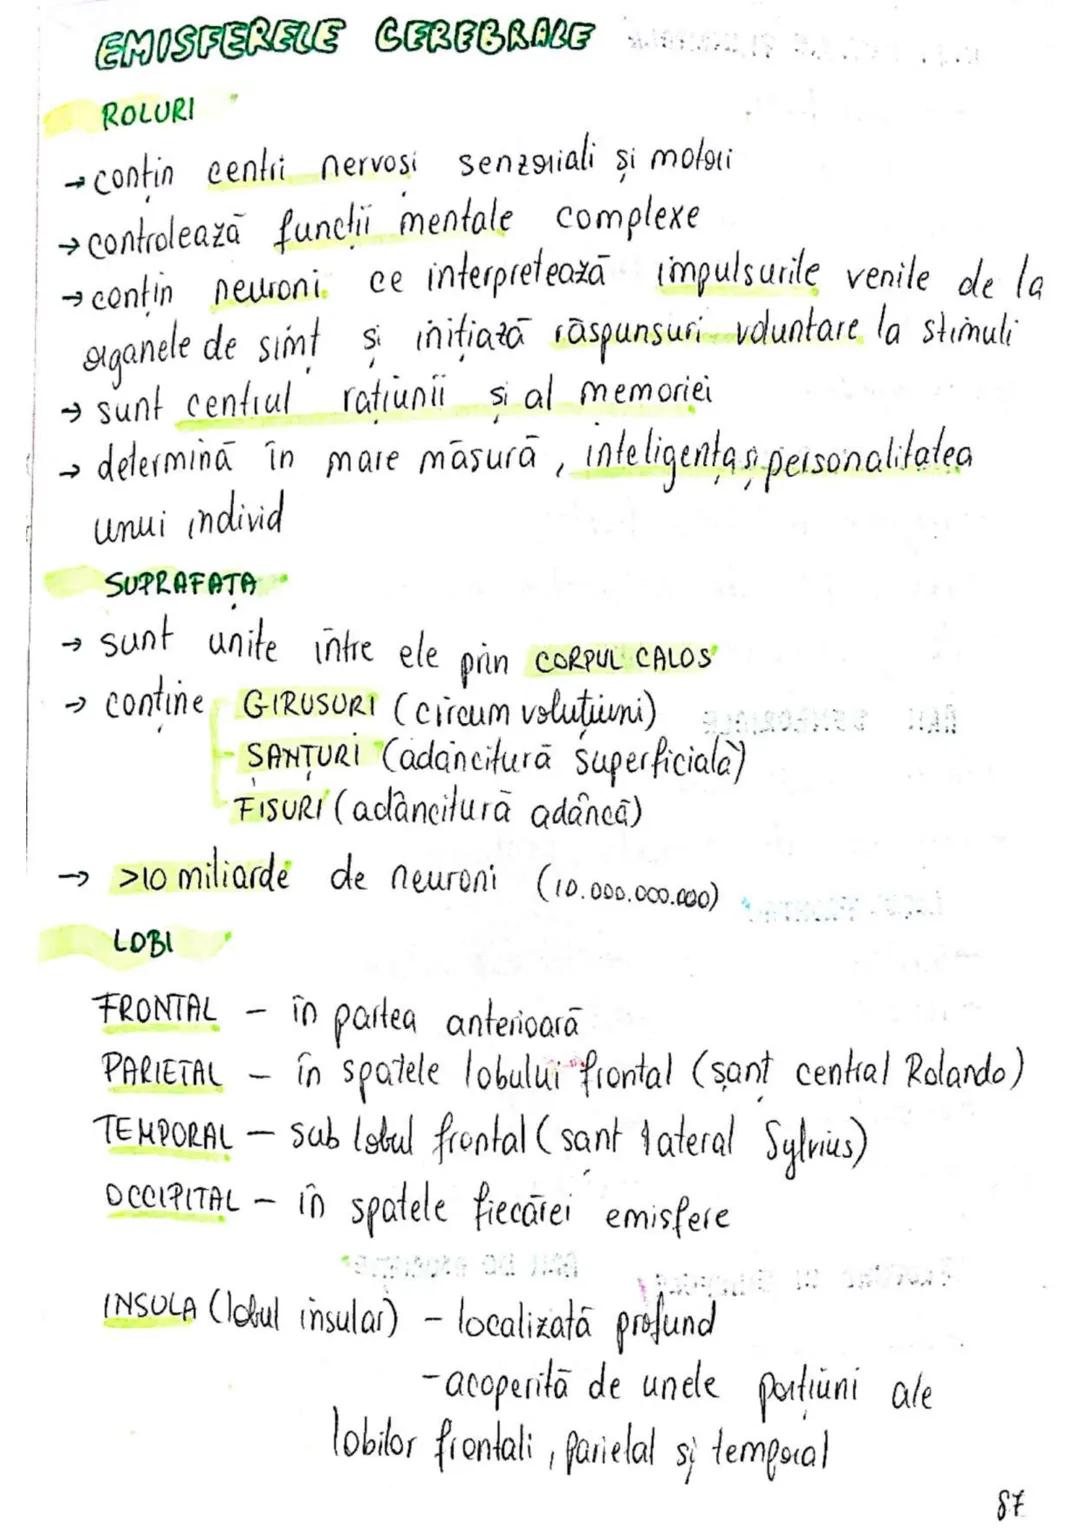 EMISFERELE CEREBRALE
ROLURI
→ conțin centri nervoși senzoriali și motori
→ controlează funcții mentale complexe
→ conțin neuroni ce interpretează impulsurile venite de la
organele de simț și inițiază răspunsuri voluntare la stimuli
→ sunt centrul rațiunii și al memoriei
→ determină în mare măsură, inteligența și personalitatea
unui individ
SUPRAFAȚA
→ sunt unite între ele prin CORPUL CALOS
→ conține GIRUSURI (circum voluțiuni)
ȘANȚURI (adâncitură superficială)
FISURI (adâncitură adâncă)
→ >10 miliarde de neuroni (10.000.000.000)
LOBI
FRONTAL - în partea anterioară
PARIETAL - în spatele lobului frontal (șanț central Rolando)
TEMPORAL - sub lobul frontal (sant lateral Sylvius)
OCCIPITAL - în spatele fiecărei emisfere
INSULA (lobul insular) - localizată profund
- acoperită de unele porțiuni ale
lobilor frontali, parietal și temporal
87